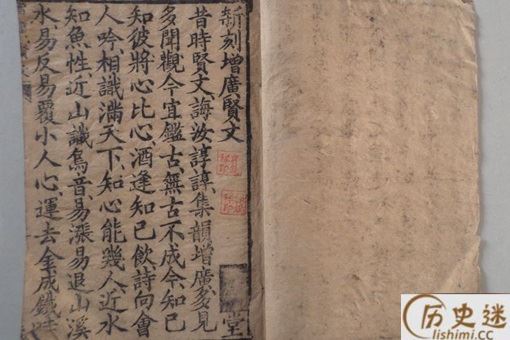 新刻增廣賢文
昔時賢文誨汝諄諄集韻增廣多見
多聞觀今宜鑑古無古不成今知己
知彼將心比心酒逢知己飲詩向會
人吟相識滿天下知心能幾人近水
知魚性近山識鳥音易漲易退山溪
水易反易覆小人心運去金成鐵時
堂
历史迷
lishimi.cc